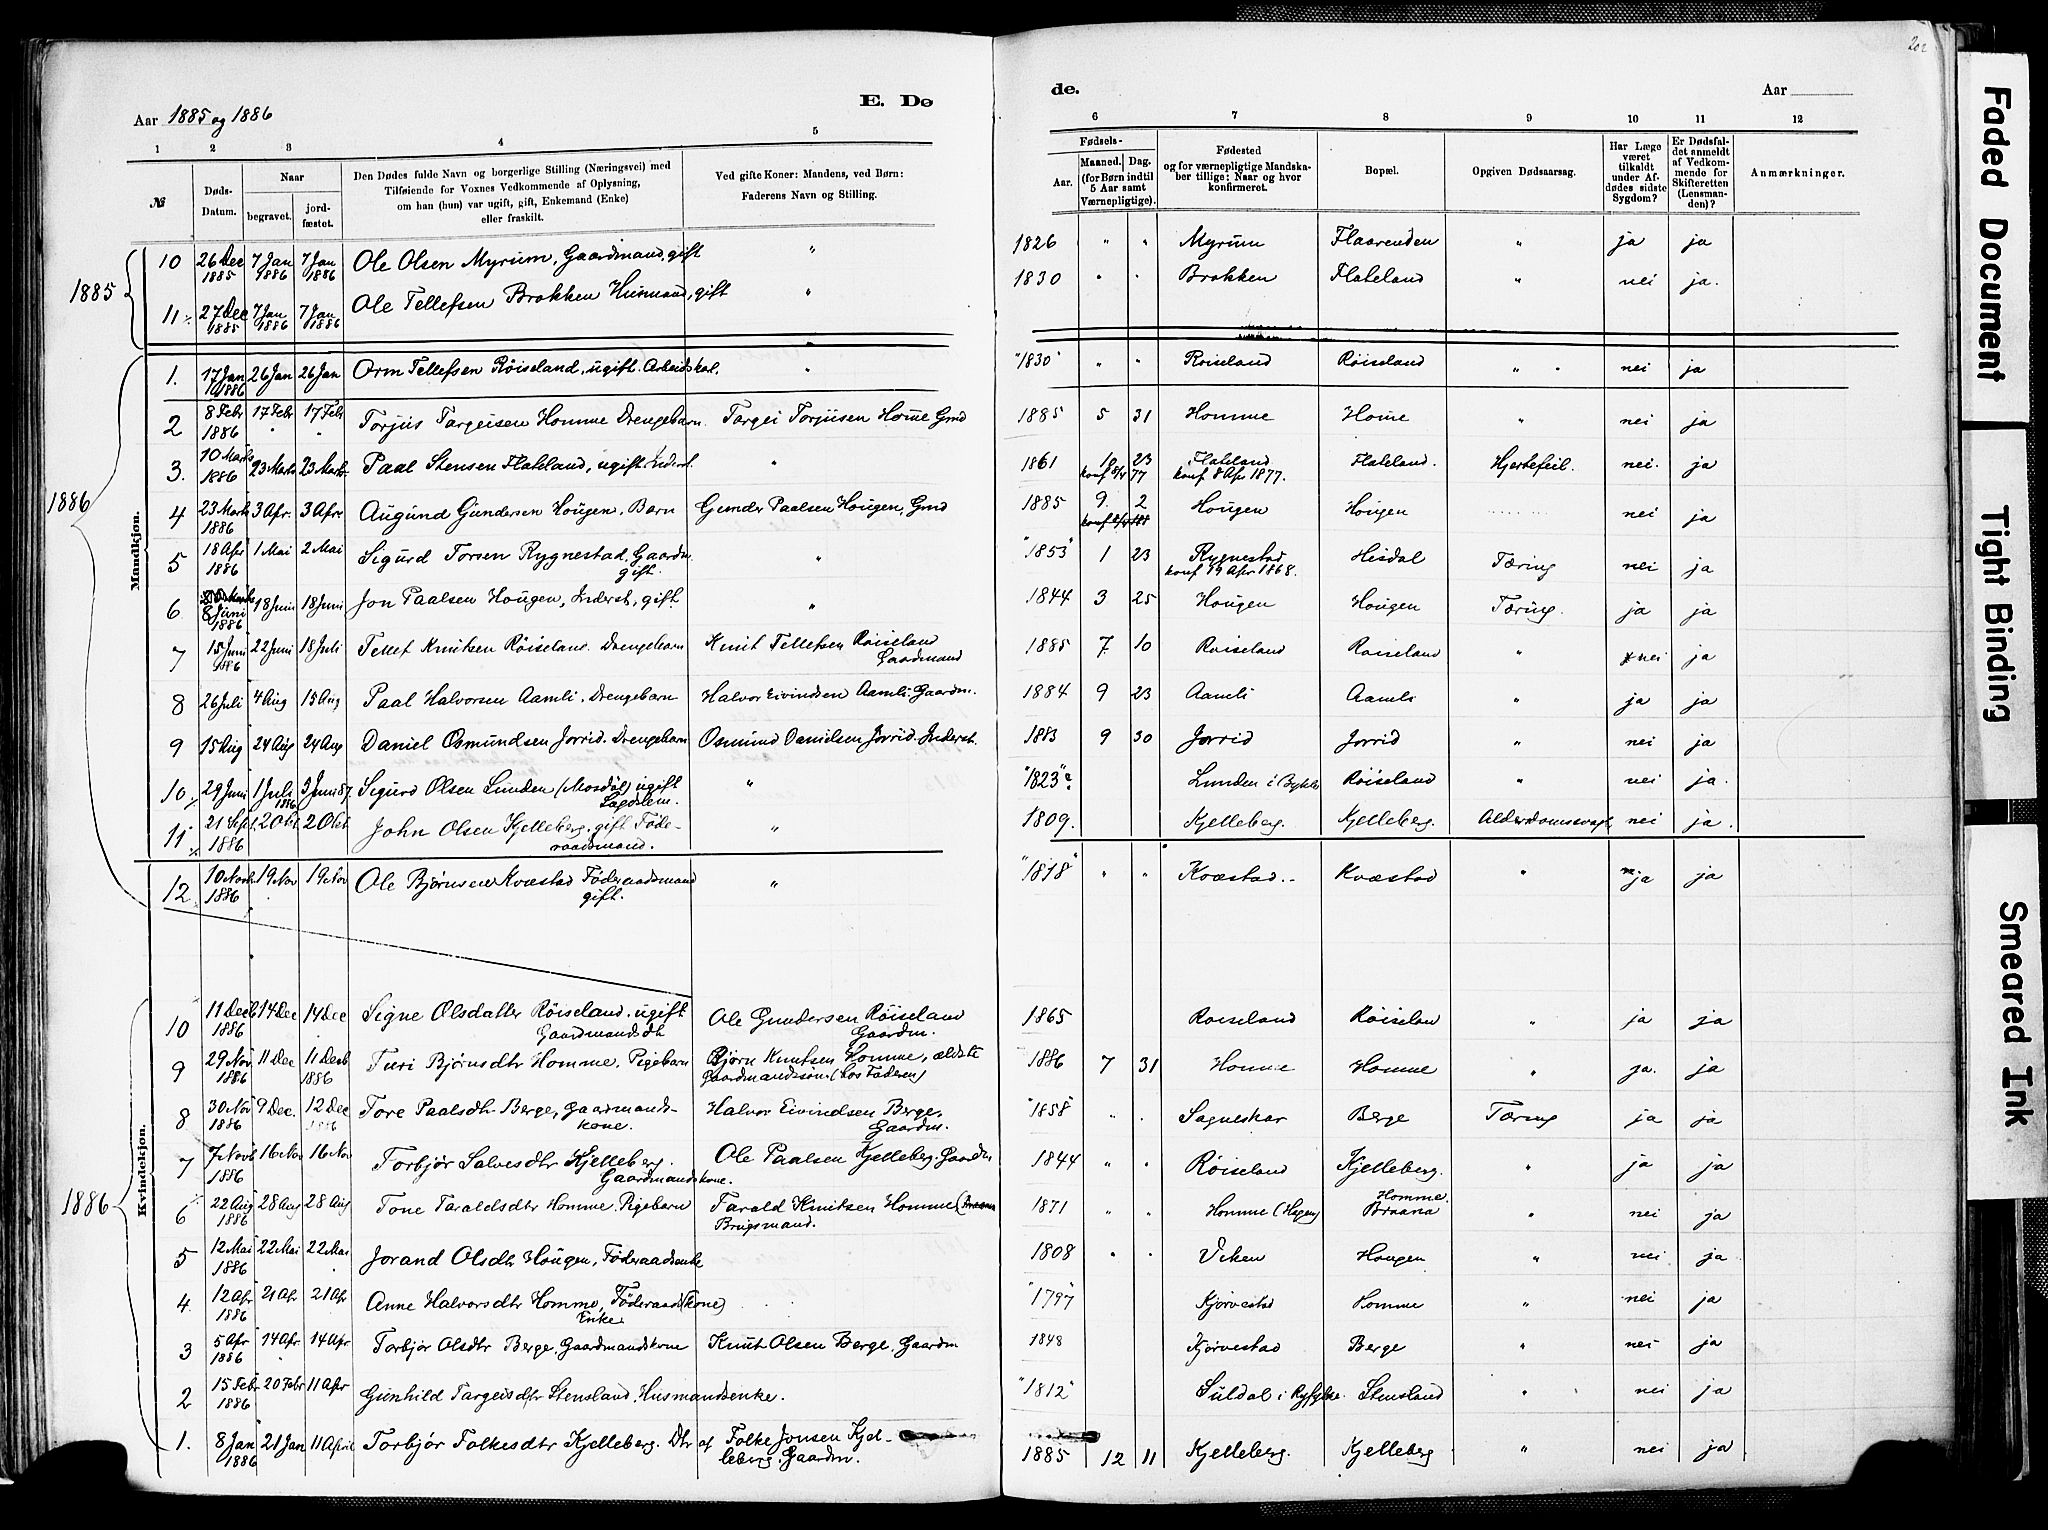 202
Aar 1885 og 1886
E. Dø
de.
Aar
1 2 3 4 5
6 7 8 9 10 11 12
№
Døds-Datum.
Naar
begravet.
jordfæstet.
Den Dødes fulde Navn og borgerlige Stilling (Næringsvei) med
Tilføiende for Voxnes Vedkommende af Oplysning,
om han (hun) var ugift, gift, Enkemand (Enke)
eller fraskilt.
Ved gifte Koner: Mandens, ved Børn:
Faderens Navn og Stilling.
Fødsels-
Aar.
Maaned. Dag.
(for Børn indtil
5 Aar samt
Værnepligtige).
Fødested
og for værnepligtige Mandska-
ber tillige: Naar og hvor
konfirmeret.
Bopæl.
Opgiven Dødsaarsag.
Har Læge
været
tilkaldt
under Af-
dødes sidste
Sygdom?
Er Dødsfal-
det anmeldt
af Vedkom-
mende for
Skifteretten
(Lensman-
den)?
Anmærkninger.
1885
10 26 Dec 1885 7 Jan 1886 7 Jan 1886 Ole Olsen Myrum, Gaardmand, gift " 1826 " " Myrum Flaarenden " ja ja
11 27 Dec 1885 7 Jan 1886 7 Jan 1886 Ole Tellefsen Brokken Husmand, gift " 1830 " " Brokken Flateland " nei ja.
1886
Mandkjøn.
1. 17 Jan 1886 26 Jan 26 Jan Orm Tellefsen Røiseland, ugift. Arbeidskal. " "1830" " " Røiseland Røiseland " nei ja
2 8 Febr 1886 17 Febr 17 Febr Torjus Targeisen Homme Drengebarn. Targei Torjusen Home Grnd 1885 5 31 Homme Home " nei ja
3. 10 Marts 1886 23 Marts 23 Marts Paal Stensen Flateland, ugift Inderst. " 1861 10 23 konf 8/4 77 Flateland konf 8 Apr 1877. Flateland. Hjertefeil. nei. ja
4 23 Marts 1886 3 Apr. 3 Apr Augund Gundersen Hougen, Barn Gunder Paalsen Hougen, Grnd 1885 9. 2 Hougen Hougen nei ja
5 18 Apr 1886 1 Mai 2 Mai Sigurd Torsen Rygnestad, Gaardm. gift. " "1853" 1 23 Rygnestad konf 19 Apr 1868. Hisdal Tæring nei ja
6 8 Juni 1886 18 Juni 18 Juni Jon Paalsen Hougen, Inderst, gift. " 1844 3 25 Hougen Hougen Tæring. ja ja
7 15 Juni 1886 22 Juni 18 Juli Tellef Knutsen Røiseland. Drengebarn Knut Tellefsen Røiseland Gaardmand 1885 7 10 Røiseland Røiseland " nei ja
8 26 Juli 4 Aug 15 Aug Paal Halvorsen Aamli. Drengebarn Halvor Eivindsen Aamli. Gaardm. 1884 9 23 Aamli Aamli " ja ja
9 15 Aug 24 Aug 24 Aug Daniel Osmundsen Jorrid. Drengebarn Osmund Danielsen Jorrid. Inderst. 1883 9 30 Jorrid Jorrid " nei ja
10 29 Juni 1 Juli 1886 3 Juni 87. Sigurd Olsen Lunden (Mosdøl) ugift Lægdslem. " "1823"? Lunden i Bykle Røiseland " nei ja.
11 21 Sept. 1886 2 Okt 2 Okt John Olsen Kjelleberg. gift Føderaadsmand. " 1809. Kjelleberg. Kjelleberg. Alderdomssvagh nei ja.
12 10 Novb. 1886 19 Nov 19 Nov Ole Bjørnsen Kvæstad Føderaadsmand gift. " "1818" " " Kvæstad.- Kvæstad " ja ja
1886
Kvindekjøn.
10 11 Decb 1886 14 Dec 14 Dec Signe Olsdatter Røiseland. ugift Gaardmandsdt Ole Gundersen Røiseland Gaardm. 1865 Røiseland Røiselan " ja ja
9 29 Nov 1886 11 Dec 11 Decb 1886 Turi Bjørnsdtr Homme. Pigebarn Bjørn Knutsen Homme, ældste Gaardmandssøn. (hos Faderen) 1886 7 31 Homme Homme " ja. ja
8 30 Nov 1886 9 Dec. 12 Dec 1886 Tore Paalsdtr Berge, gaardmandskone. Halvor Eivindsen Berge, Gaardm. "1858" " . Sagneskar Berge Tæring ja ja
7 7 Novb 1886 16 Nov 16 Nov Torbjør Salvesdtr Kjelleberg. Gaardmandskone. Ole Paalsen Kjelleberg. Gaardm 1844 " " Røiseland Kjelleberg. " ja ja
6 22 Aug 1886 28 Aug 28 Aug Tone Taraldsdtr Homme. Pigebarn Tarald Knutsen Homme Brugsmand. 1871 " " Homme (Hagen) Homme. Braana " nei ja
5 12 Mai 1886 22 Mai 22 Mai Jorand Olsdtr Hougen, Føderaadsenke 1808 " . Viken Hougen " nei ja
4. 12 Apr 1886 21 Apr 21 Apr Anne Halvorsdtr Homme, Føderaad(kone) Enke "1797" Kjørvestad Homme " nei ja
3 5 Apr 1886 14 Apr 14 Apr Torbjør Olsdtr Berge, Gaardmandskone Knut Olsen Berge. Gaardm 1848 Kjørvestad Berge " nei ja
2 15 Febr 1886 20 Febr 11 Apr Gunhild Targeisdtr Stensland. Husmandsenke. "1812" Suldal i Ryfylke. Stensland " nei ja
1. 8 Jan 1886 21 Jan 11 April Torbjør Folkesdtr Kjelleberg. Dtr af Folke Jonsen Kjelleberg. Gaardm. 1885 12 11 Kjelleberg. Kjelleberg " nei ja
Faded Document
Tight Binding
Smeared Ink